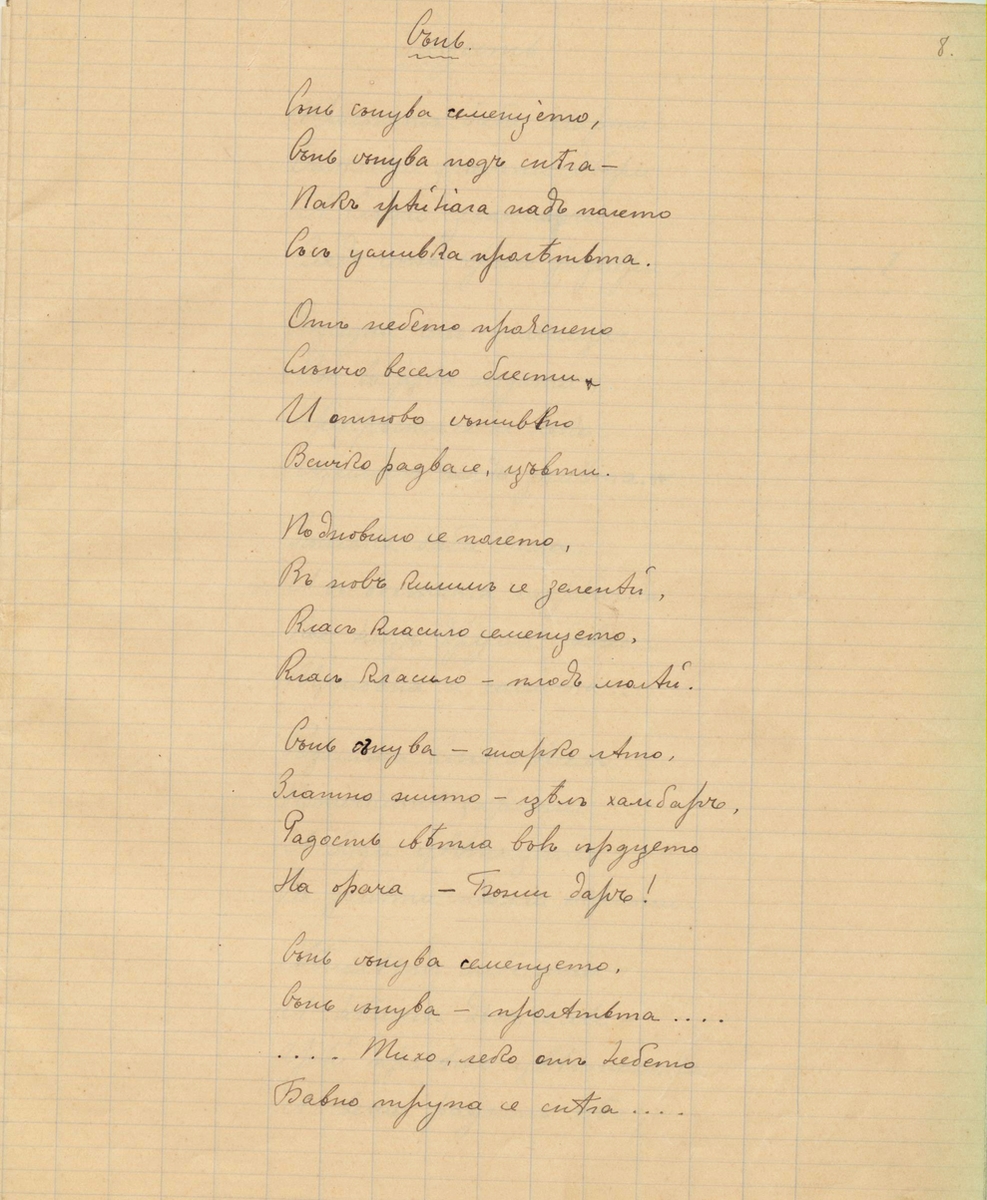 Сънь.
8.
Сънь сънува семенцето,
Сънь сънува подъ снѣга —
Пакъ над полето
Съсъ усмивка пролѣтьта.
Отъ небето прояснено
Слънчо весело блести
И отново съживено
Всичко радва се, цъвти.
Подновило се полето,
Въ новъ килимъ се зеленѣй,
Класъ класило семенцето,
Класъ класило — плодъ люлѣй.
Сънь сънува — жарко лѣто,
Златно жито — цѣлъ хамбаръ,
Радость свѣтла въвъ сърдцето
На орача — Божи даръ!
Сънь сънува семенцето,
Сънь сънува — пролѣтьта....
.... Тихо, леко отъ небето
Бавно трупа се снѣга....